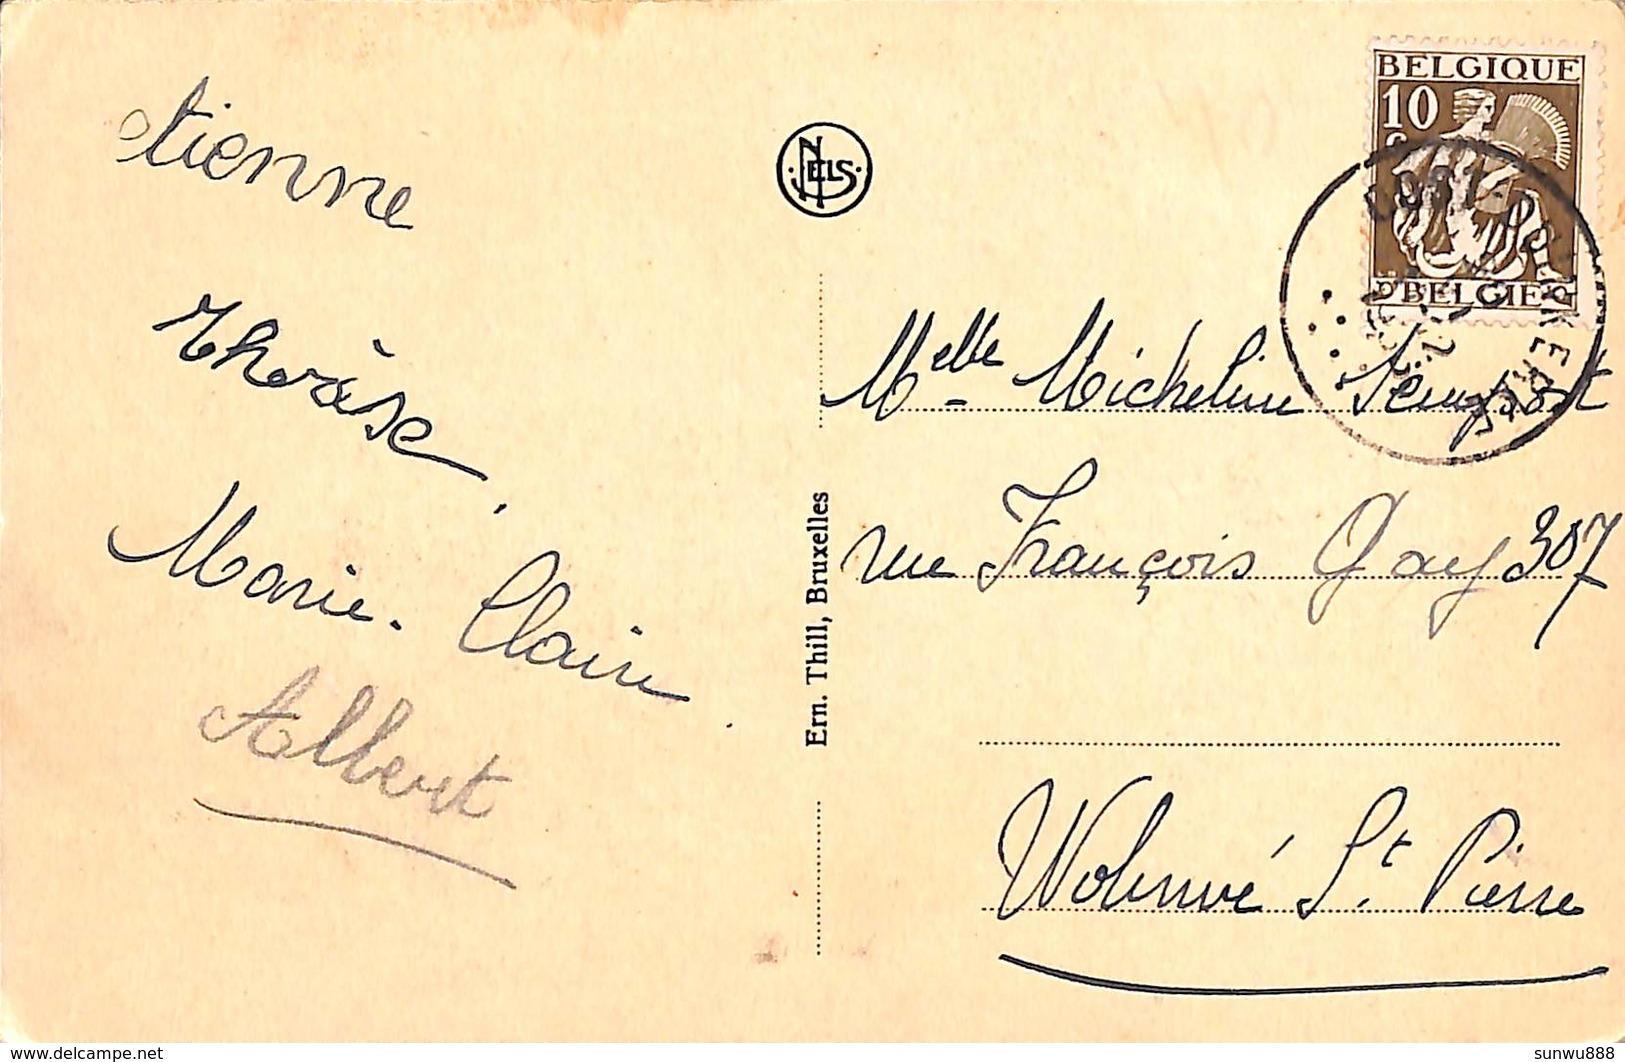 etienne
Thérèse,
Marie-Claire.
Albert
NELS
Ern. Thill, Bruxelles
BELGIQUE
10
c
BELGIE
Melle Micheline
rue François Gay 307
Woluwé St Pierre
www.delcampe.net
sunwu888